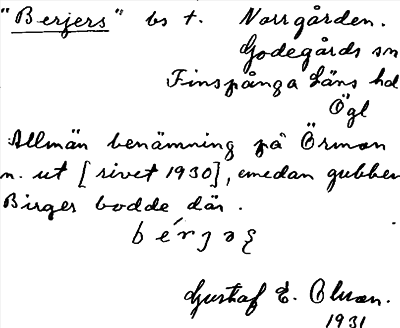 "Berjers" bs t. Norrgården.
Godegårds sn
Finspånga läns hd
Ögl
Allmän benämning på Örmon
n. ut [rivet 1930], medan gubben
Birger bodde där.
Gustaf E. Olson.
1931